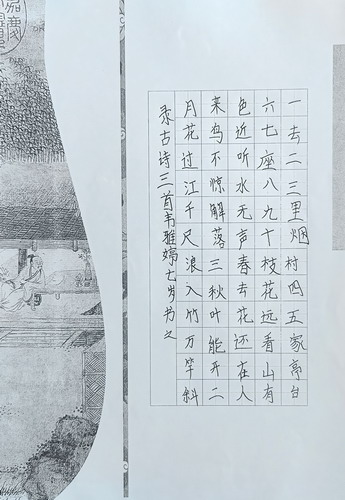 一去二三里烟村四五家亭台
六七座八九十枝花远看山有
色近听水无声春去花还在人
来鸟不惊解落三秋叶能开二
月花过江千尺浪入竹万竿斜
录古诗三首韦雅婷七岁书之
嘉慶